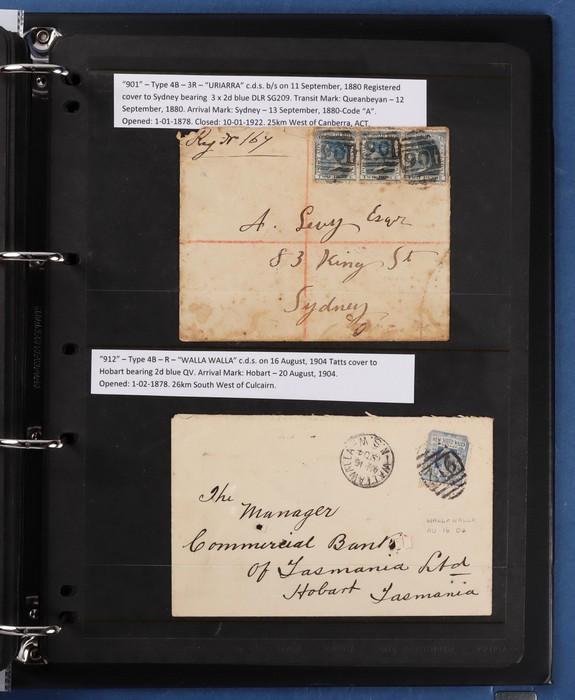 "901" – Type 4B – 3R – "URIARRA" c.d.s. b/s on 11 September, 1880 Registered
cover to Sydney bearing 3 x 2d blue DLR SG209. Transit Mark: Queanbeyan – 12
September, 1880. Arrival Mark: Sydney – 13 September, 1880-Code "A".
Opened: 1-01-1878. Closed: 10-01-1922. 25km West of Canberra, ACT.
Reg No 167
901 901 901
A. Levy Esqr
83 King St
Sydney
"912" – Type 4B – R – "WALLA WALLA" c.d.s. on 16 August, 1904 Tatts cover to
Hobart bearing 2d blue QV. Arrival Mark: Hobart – 20 August, 1904.
Opened: 1-02-1878. 26km South West of Culcairn.
WALLA WALLA N.S.W
AU 16
The
Manager
Commercial Bank
of Tasmania Ltd
Hobart Tasmania
WALLA WALLA
AU 16 04